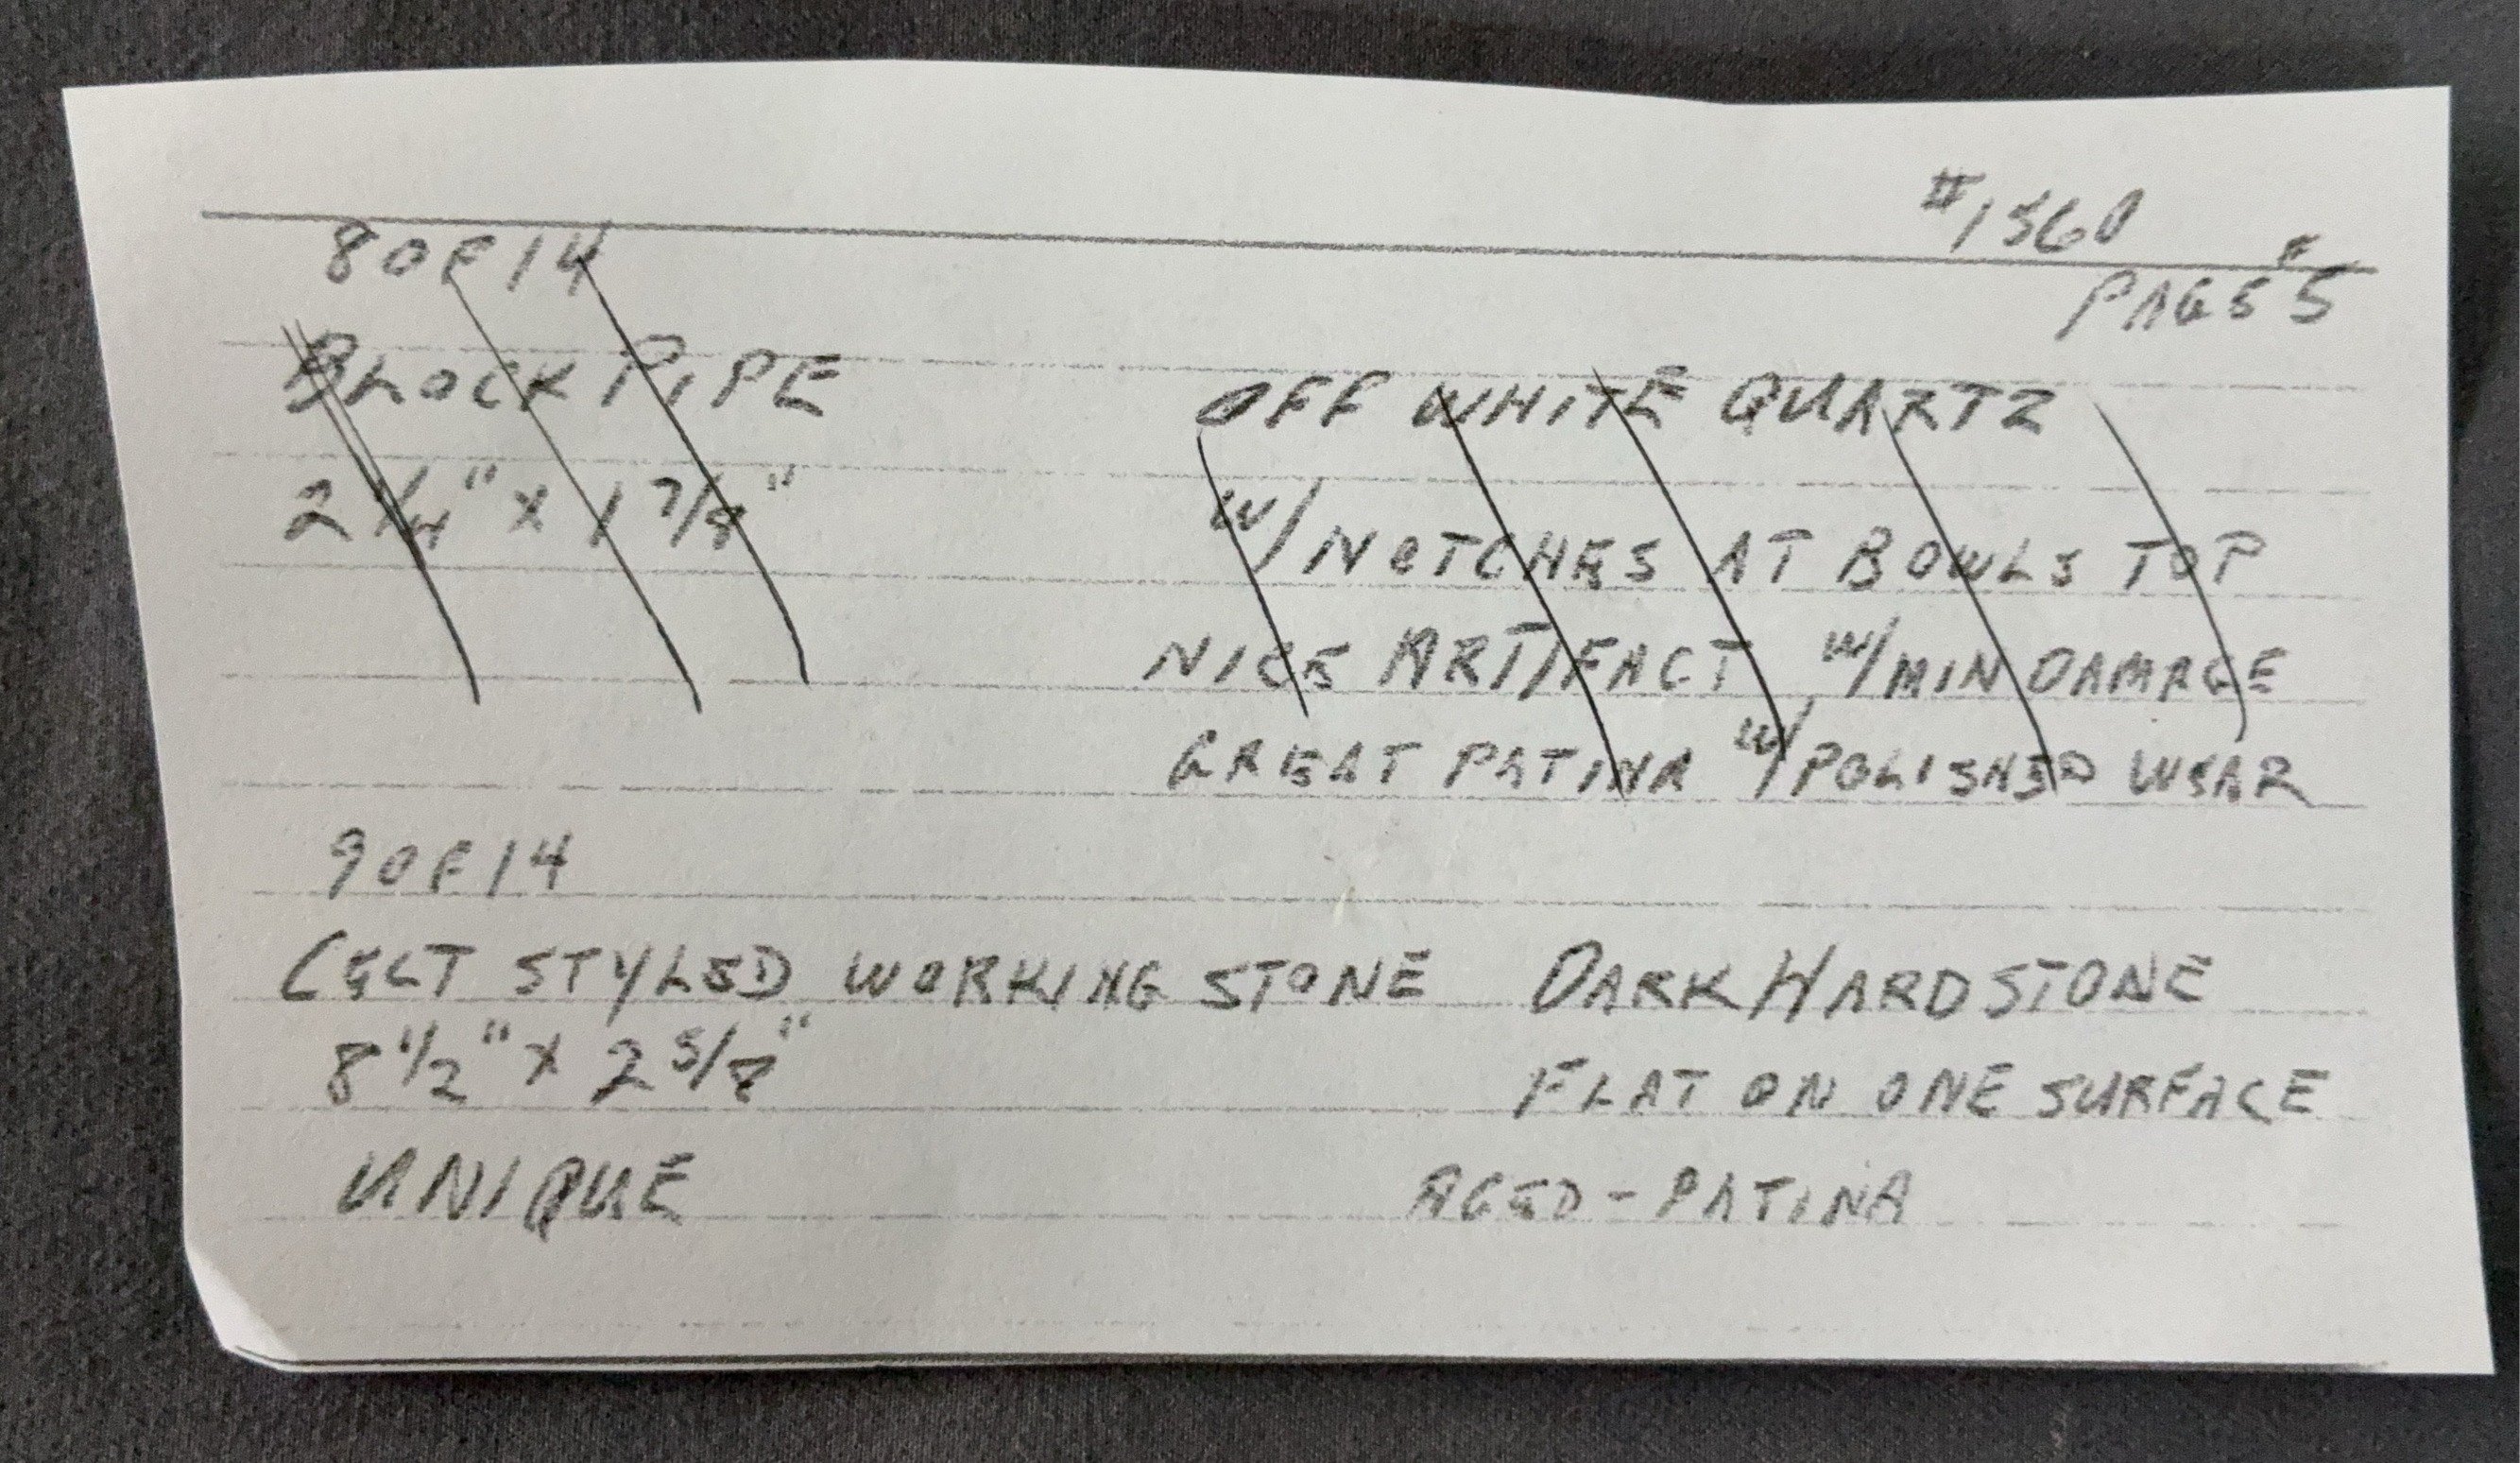 #1560
PAGE #5
8 OF 14
BLOCK PIPE
OFF WHITE QUARTZ
2 1/4" X 1 7/8"
W/ NOTCHES AT BOWLS TOP
NICE ARTIFACT W/ MIN DAMAGE
GREAT PATINA W/ POLISHED WEAR
9 OF 14
CELT STYLED WORKING STONE DARK HARDSTONE
8 1/2" X 2 5/8" FLAT ON ONE SURFACE
UNIQUE AGED - PATINA